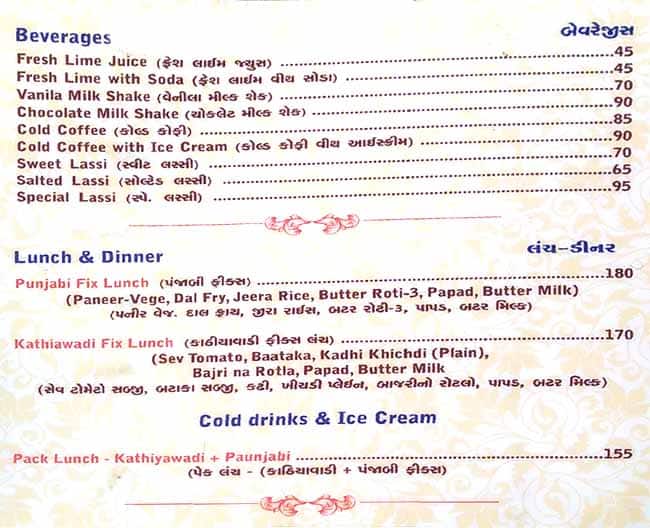 Beverages બેવરેજીસ
Fresh Lime Juice (ફ્રેશ લાઈમ જ્યુસ) 45
Fresh Lime with Soda (ફ્રેશ લાઈમ વીથ સોડા) 45
Vanila Milk Shake (વેનીલા મીલ્ક શેક) 70
Chocolate Milk Shake (ચોકલેટ મીલ્ક શેક) 90
Cold Coffee (કોલ્ડ કોફી) 85
Cold Coffee with Ice Cream (કોલ્ડ કોફી વીથ આઈસ્ક્રીમ) 90
Sweet Lassi (સ્વીટ લસ્સી) 70
Salted Lassi (સોલ્ટેડ લસ્સી) 65
Special Lassi (સ્પે. લસ્સી) 95
Lunch & Dinner લંચ-ડીનર
Punjabi Fix Lunch (પંજાબી ફીક્સ) 180
(Paneer-Vege, Dal Fry, Jeera Rice, Butter Roti-3, Papad, Butter Milk)
(પનીર વેજ. દાલ ફ્રાય, જીરા રાઈસ, બટર રોટી-૩, પાપડ, બટર મિલ્ક)
Kathiawadi Fix Lunch (કાઠીયાવાડી ફીક્સ લંચ) 170
(Sev Tomato, Baataka, Kadhi Khichdi (Plain),
Bajri na Rotla, Papad, Butter Milk
(સેવ ટોમેટો સબ્જી, બટાકા સબ્જી, કઢી, ખીચડી પ્લેઈન, બાજરીનો રોટલો, પાપડ, બટર મિલ્ક)
Cold drinks & Ice Cream
Pack Lunch - Kathiyawadi + Paunjabi 155
(પેક લંચ - (કાઠિયાવાડી + પંજાબી ફીક્સ)